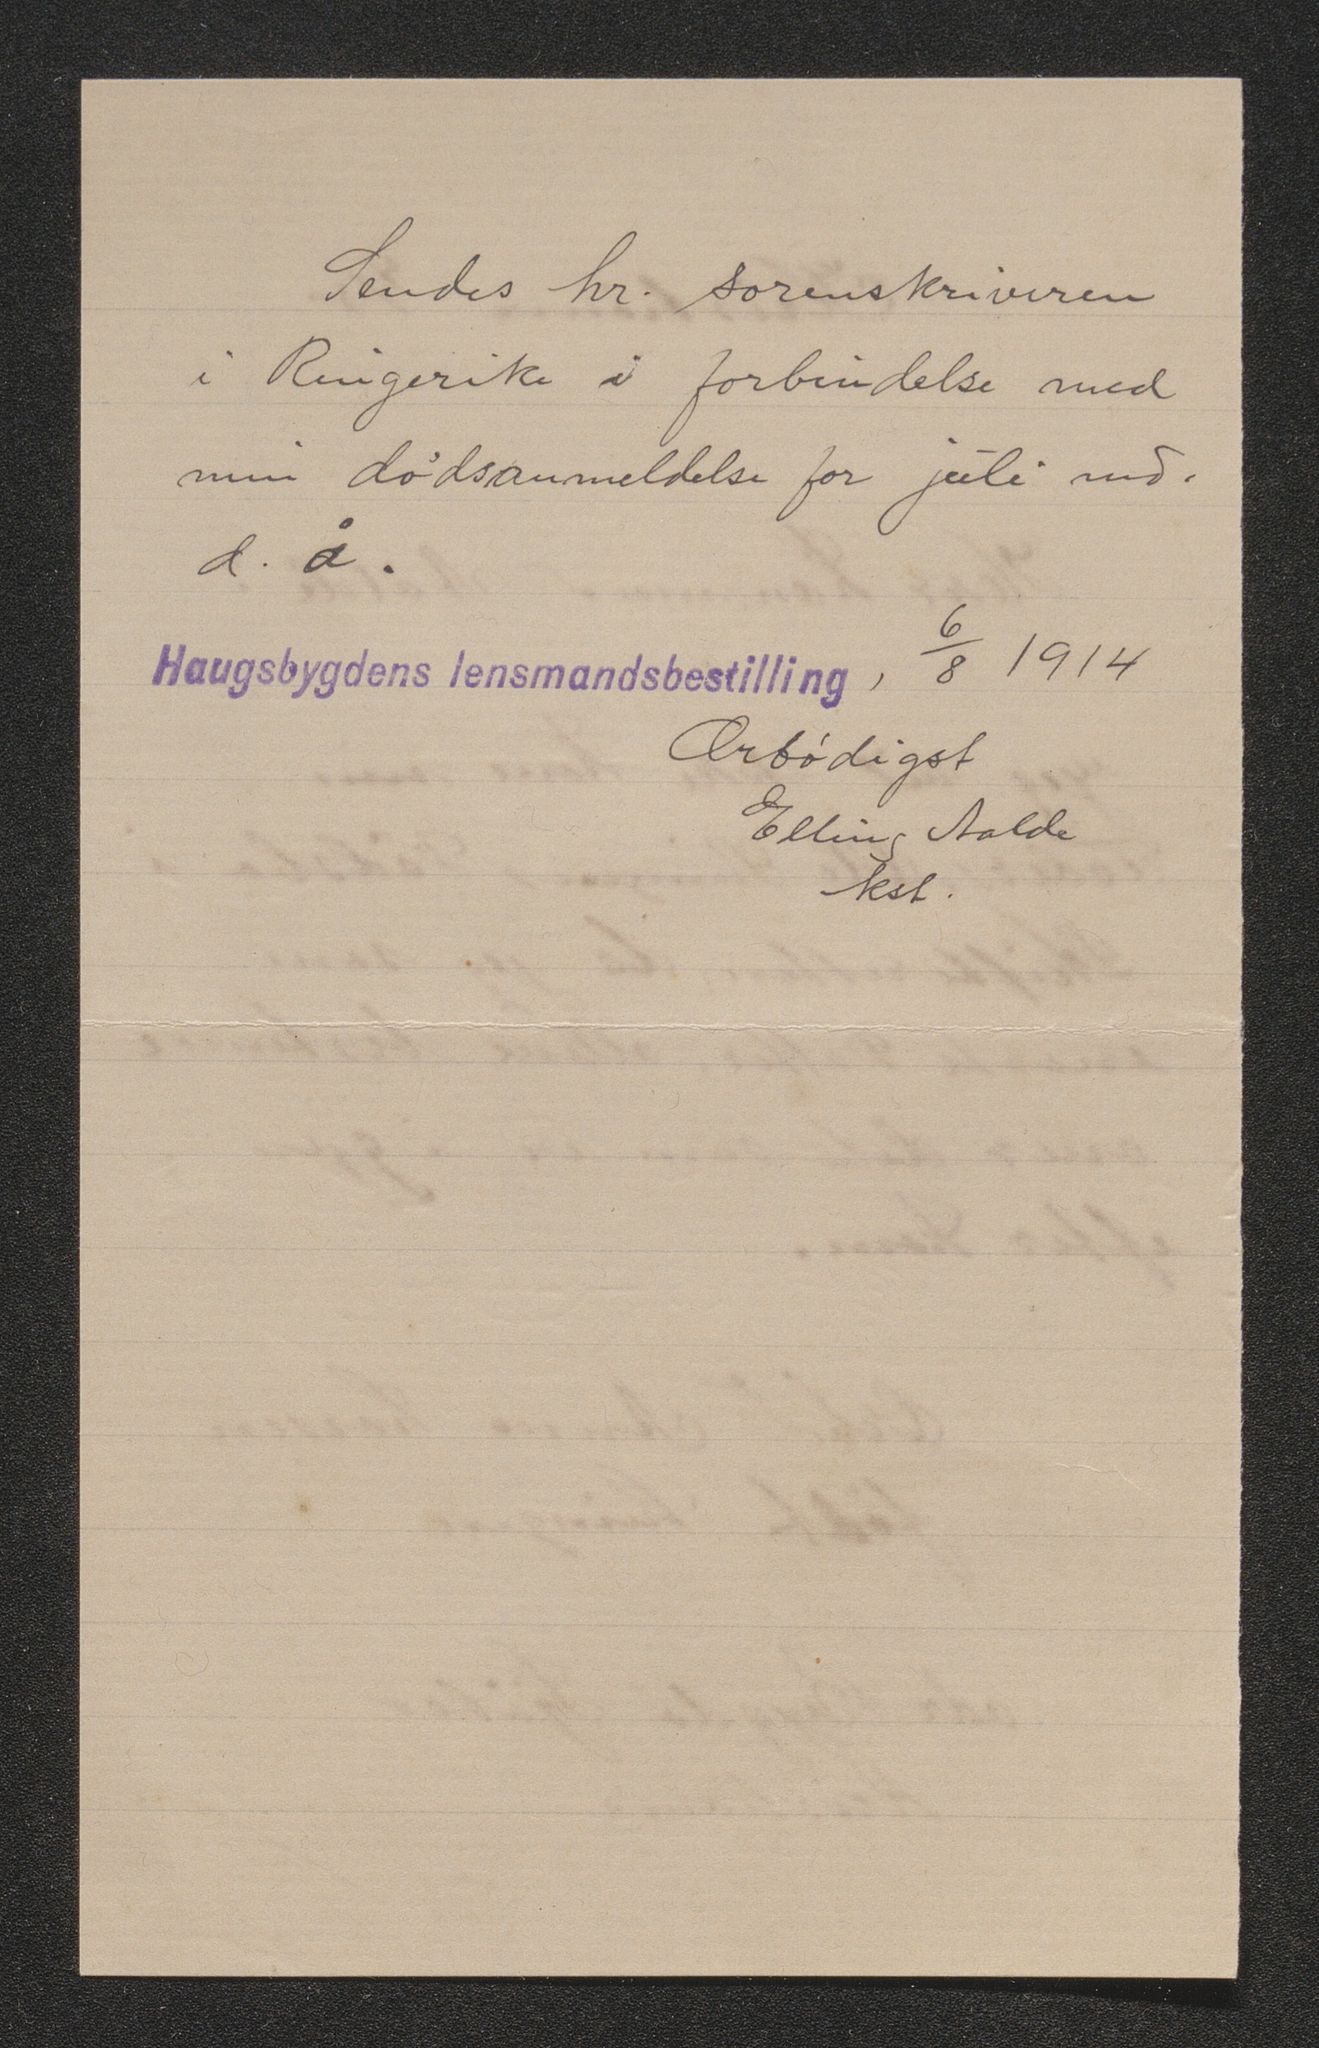 Sendes hr. sorenskriveren
i Ringerike i forbindelse med
min dødsanmeldelse for juli md.
d. å.
Haugsbygdens lensmandsbestilling, 6/8 1914
Ærbødigst
Elling Aalde
kst.